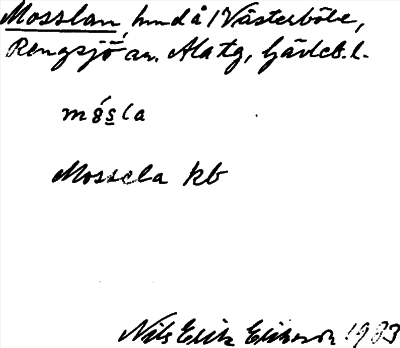 Mosslan, hmd å 1 Västerböle,
Rengsjö sn. Ala tg, Gävleb. l.
mósla
Mossela kb
Nils Erik Eliksson 1983